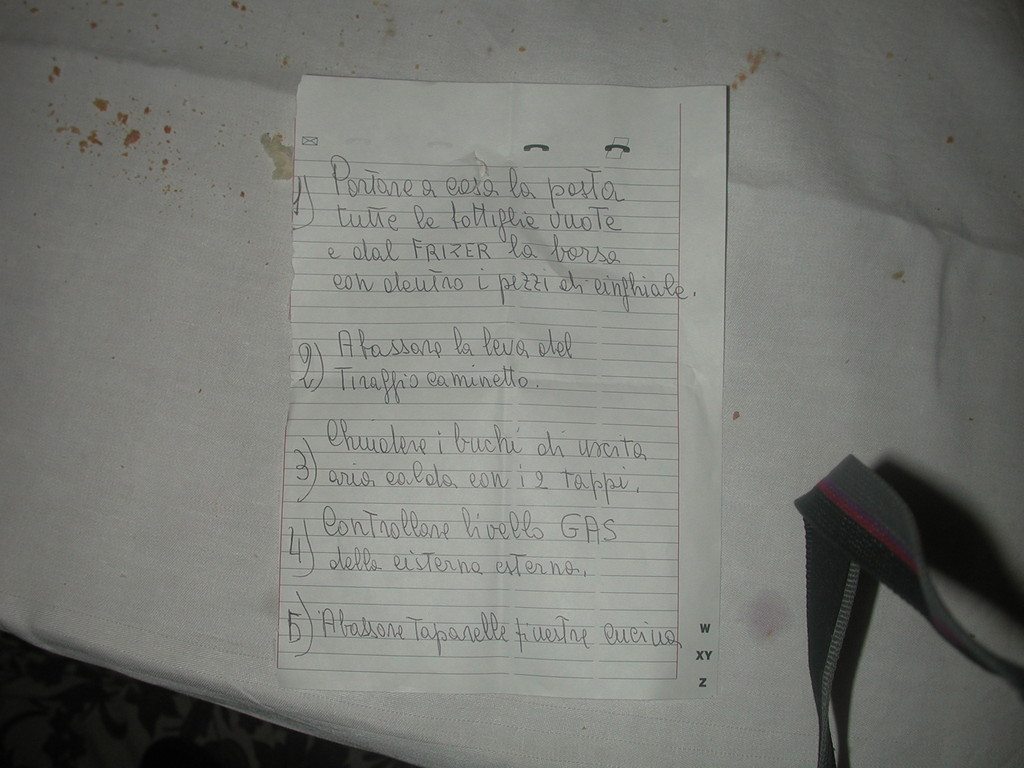 1) Portare a casa la posta
tutte le bottiglie vuote
e dal FRIZER la borsa
con dentro i pezzi di cinghiale.
2) Abassare la leva del
Tiraggio caminetto.
3) Chiudere i buchi di uscita
aria calda con i 2 tappi.
4) Controllare livello GAS
della cisterna esterna.
5) Abassare Taparelle finestre cucina
W
XY
Z